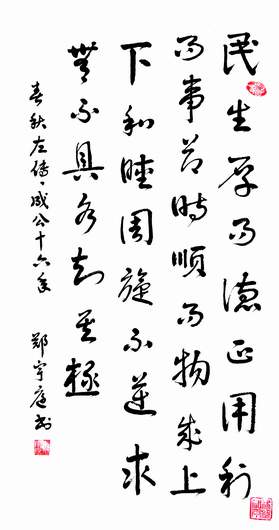 民生厚而德正用利
而事節時順而物成上
下和睦周旋不逆求
無不具各知其極
春秋左傳·成公十六年 鄭宇庭書